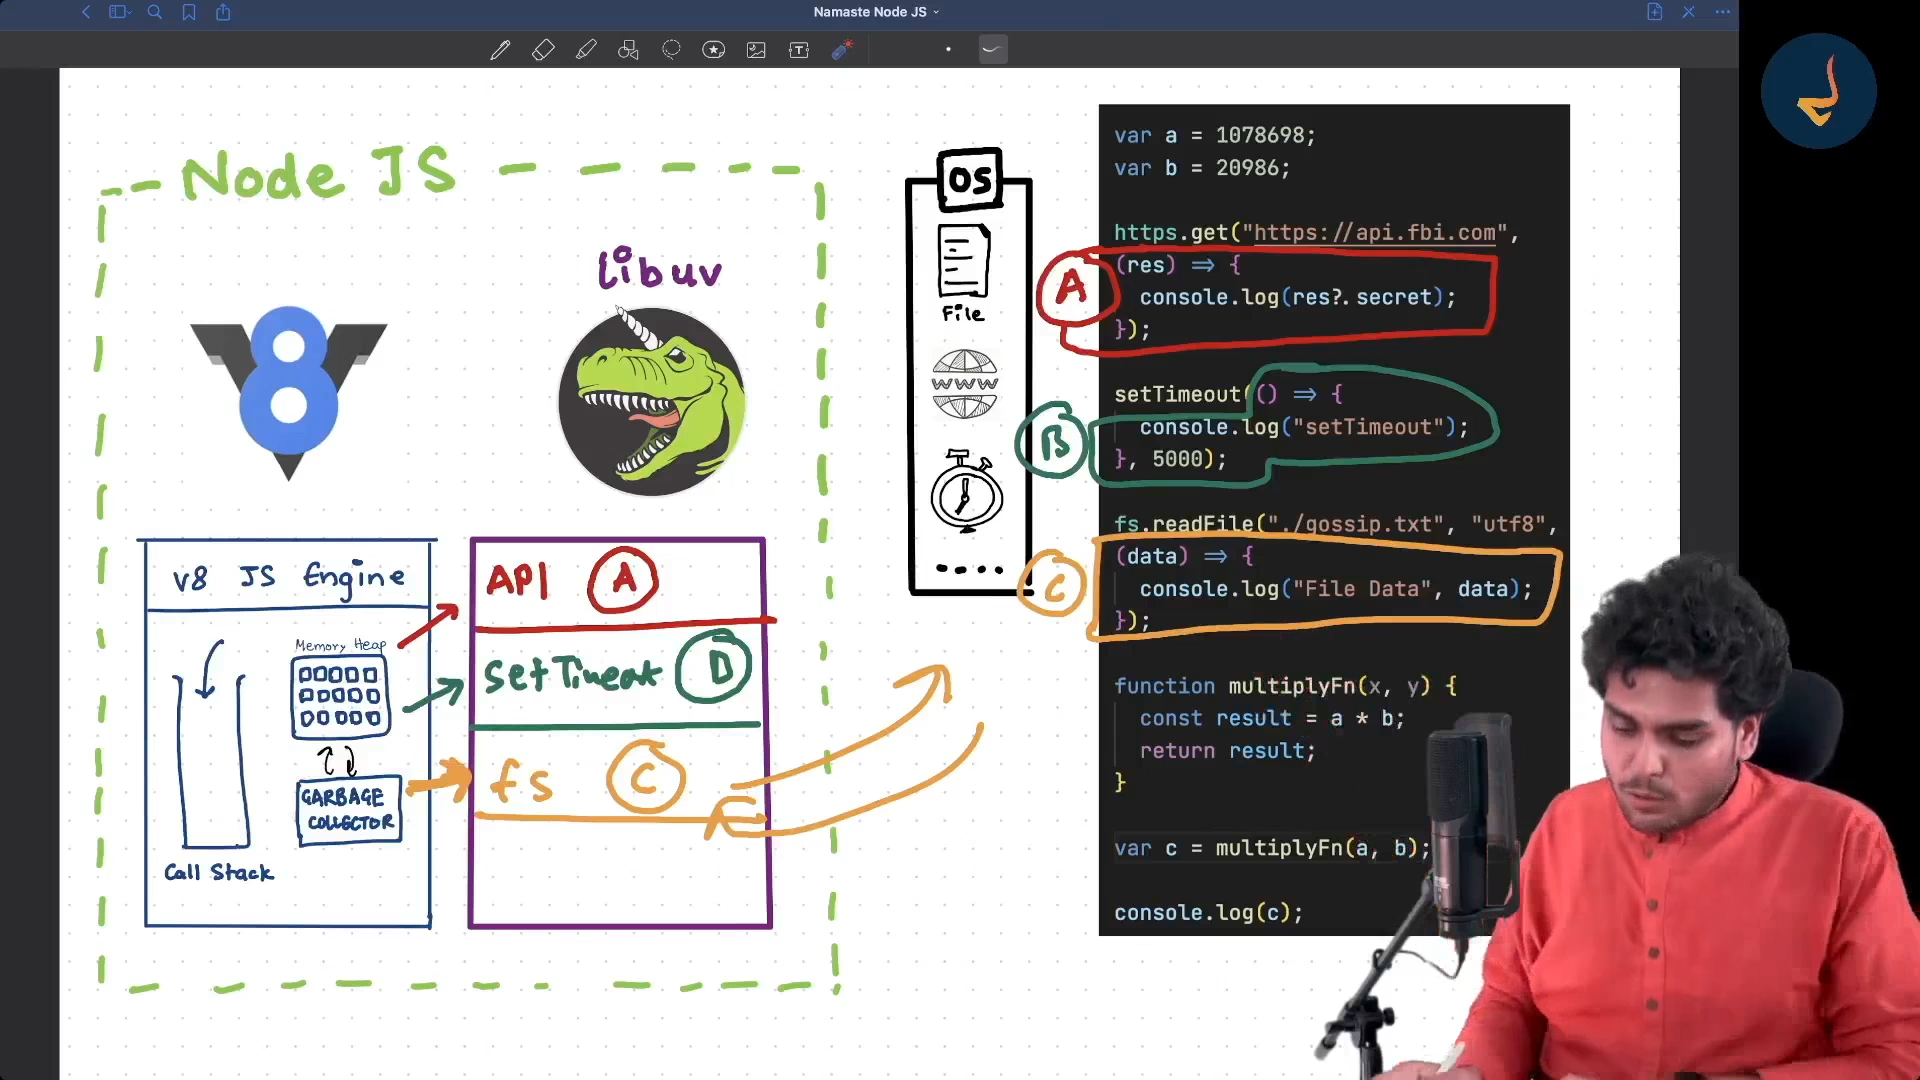 Namaste Node JS
Node JS
Libuv
8
V8 JS Engine
Memory Heap
GARBAGE
COLLECTOR
Call Stack
API A
SetTimeout B
fs C
OS
File
www
A
B
C
var a = 1078698;
var b = 20986;
https.get("https://api.fbi.com",
(res) => {
console.log(res?.secret);
});
setTimeout(() => {
console.log("setTimeout");
}, 5000);
fs.readFile("./gossip.txt", "utf8",
(data) => {
console.log("File Data", data);
});
function multiplyFn(x, y) {
const result = a * b;
return result;
}
var c = multiplyFn(a, b);
console.log(c);